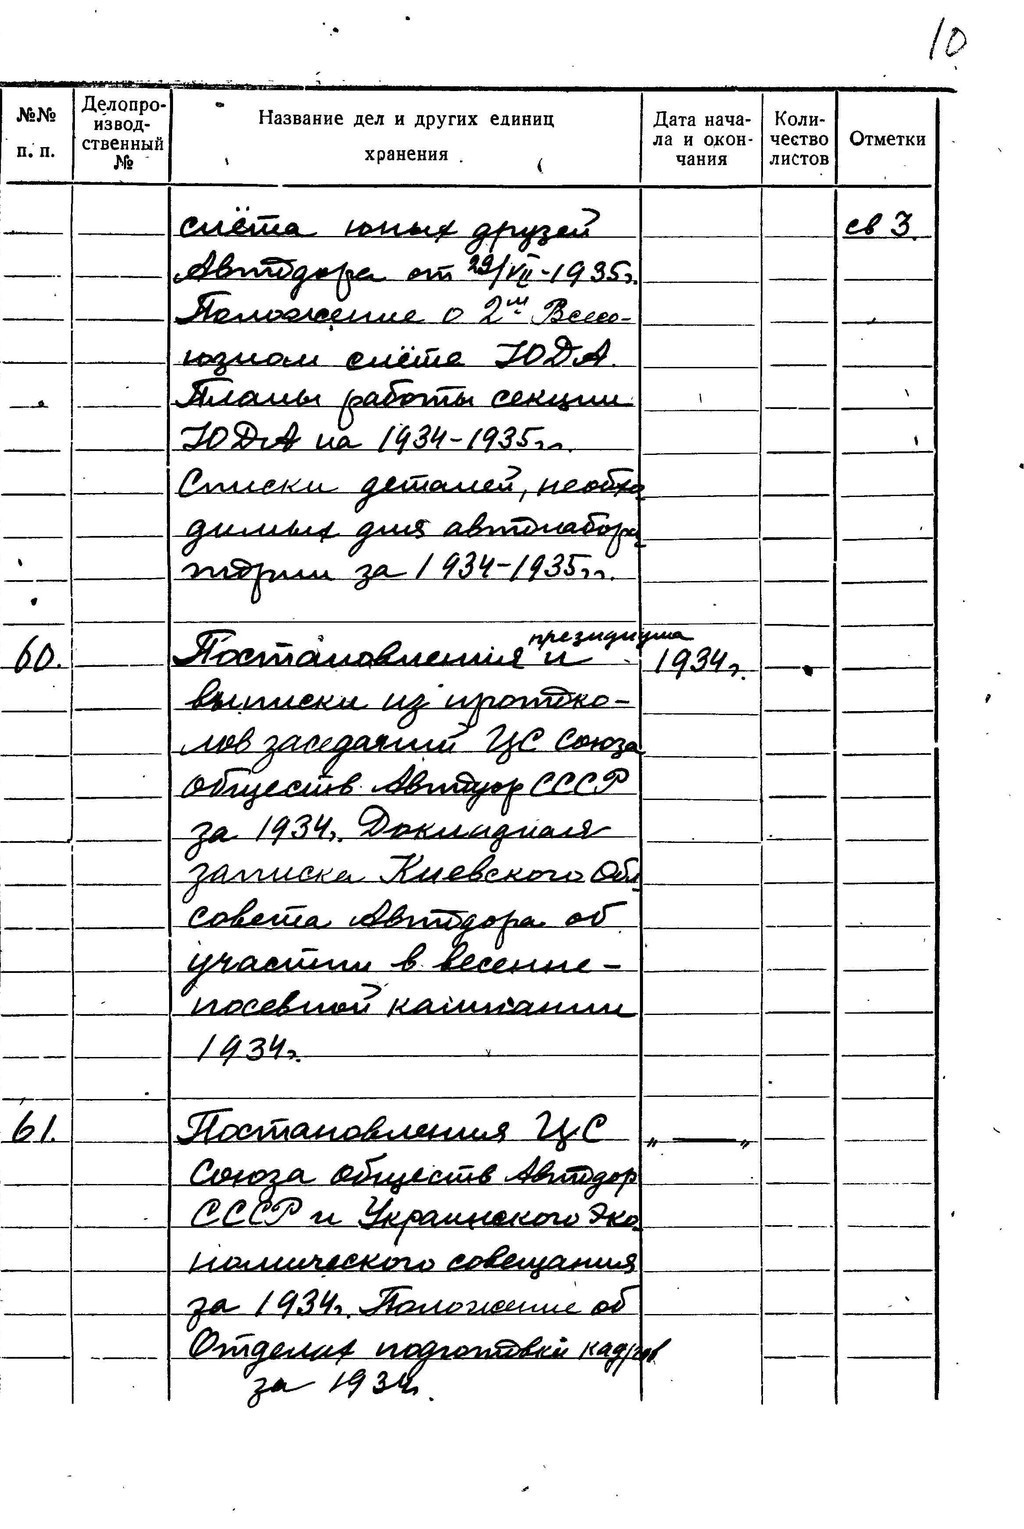 10
№№ п. п.
Делопро-
извод-
ственный
№
Название дел и других единиц
хранения
Дата нача-
ла и окон-
чания
Коли-
чество
листов
Отметки
слёта юных друзей св 3.
Автодора от 29/VII-1935г.
Положение о 2м Всесо-
юзном слёте ЮДА.
Планы работы секции
ЮДА на 1934-1935гг.
Списки деталей, необхо
димых для автолабора
тории за 1934-1935гг.
президиума
60. Постановления и 1934г.
выписки из протоко-
лов заседаний ЦС Союза
Обществ Автодор СССР
за 1934г. Докладная
записка Киевского Обл
совета Автодора об
участии в весенне-
посевной кампании
1934г.
61. Постановления ЦС „ — „
Союза обществ Автодор
СССР и Украинского Эко
номического совещания
за 1934г. Положение об
Отделах подготовки кадров
за 1934г.